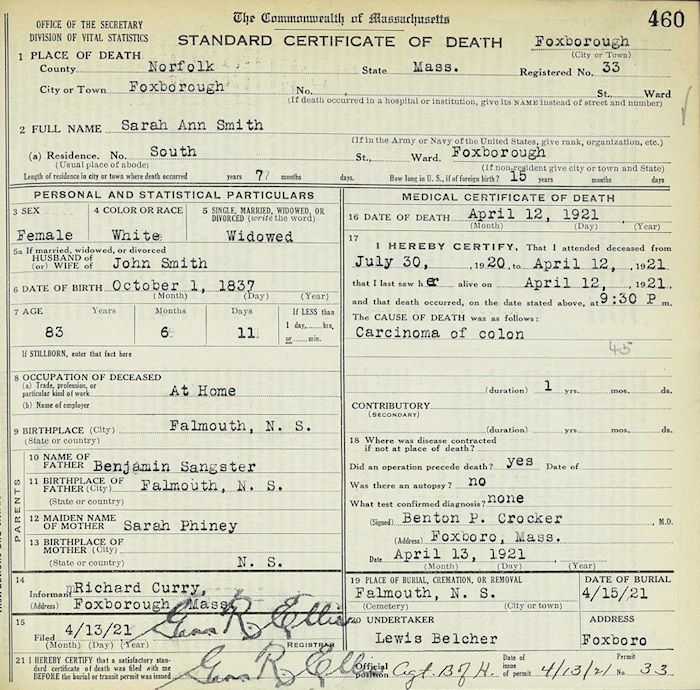 OFFICE OF THE SECRETARY
DIVISION OF VITAL STATISTICS
The Commonwealth of Massachusetts
STANDARD CERTIFICATE OF DEATH
460
Foxborough
(City or Town)
1 PLACE OF DEATH
County Norfolk State Mass. Registered No. 33
City or Town Foxborough No. St., Ward
(If death occurred in a hospital or institution, give its NAME instead of street and number)
2 FULL NAME Sarah Ann Smith
(If in the Army or Navy of the United States, give rank, organization, etc.)
(a) Residence. No. South St., Ward. Foxborough
(Usual place of abode) (If non-resident give city or town and State)
Length of residence in city or town where death occurred years 7 months days. How long in U. S., if of foreign birth? 15 years months days
PERSONAL AND STATISTICAL PARTICULARS
3 SEX 4 COLOR OR RACE 5 SINGLE, MARRIED, WIDOWED, OR
DIVORCED (write the word)
Female White Widowed
5a If married, widowed, or divorced
HUSBAND of
(or) WIFE of John Smith
6 DATE OF BIRTH October 1, 1837
(Month) (Day) (Year)
7 AGE Years Months Days If LESS than
1 day,....hrs.
or....min.
83 6 11
If STILLBORN, enter that fact here
8 OCCUPATION OF DECEASED
(a) Trade, profession, or
particular kind of work At Home
(b) Name of employer
9 BIRTHPLACE (City) Falmouth, N. S.
(State or country)
PARENTS
10 NAME OF
FATHER Benjamin Sangster
11 BIRTHPLACE OF
FATHER (City) Falmouth, N. S.
(State or country)
12 MAIDEN NAME
OF MOTHER Sarah Phiney
13 BIRTHPLACE OF
MOTHER (City)
(State or country) N. S.
14
Informant Richard Curry,
(Address) Foxborough, Mass
15
Filed 4/13/21
(Month) (Day) (Year) REGISTRAR
21 I HEREBY CERTIFY that a satisfactory stan-
dard certificate of death was filed with me
BEFORE the burial or transit permit was issued
MEDICAL CERTIFICATE OF DEATH
16 DATE OF DEATH April 12, 1921
(Month) (Day) (Year)
17
I HEREBY CERTIFY, That I attended deceased from
July 30, , 1920, to April 12, , 1921
that I last saw her alive on April 12, , 1921,
and that death occurred, on the date stated above, at 9:30 P m.
The CAUSE OF DEATH was as follows:
Carcinoma of colon
45
(duration) 1 yrs. mos. ds.
CONTRIBUTORY
(SECONDARY)
(duration) yrs. mos. ds.
18 Where was disease contracted
if not at place of death?
Did an operation precede death? yes Date of
Was there an autopsy? no
What test confirmed diagnosis? none
(Signed) Benton P. Crocker , M.D.
(Address) Foxboro, Mass.
Date April 13, 1921
(Month) (Day) (Year)
19 PLACE OF BURIAL, CREMATION, OR REMOVAL DATE OF BURIAL
Falmouth, N. S. 4/15/21
(Cemetery) (City or town)
20 UNDERTAKER ADDRESS
Lewis Belcher Foxboro
Official
position Agt. B of H. Date of
issue
of permit 4/13/21 Permit
No. 33